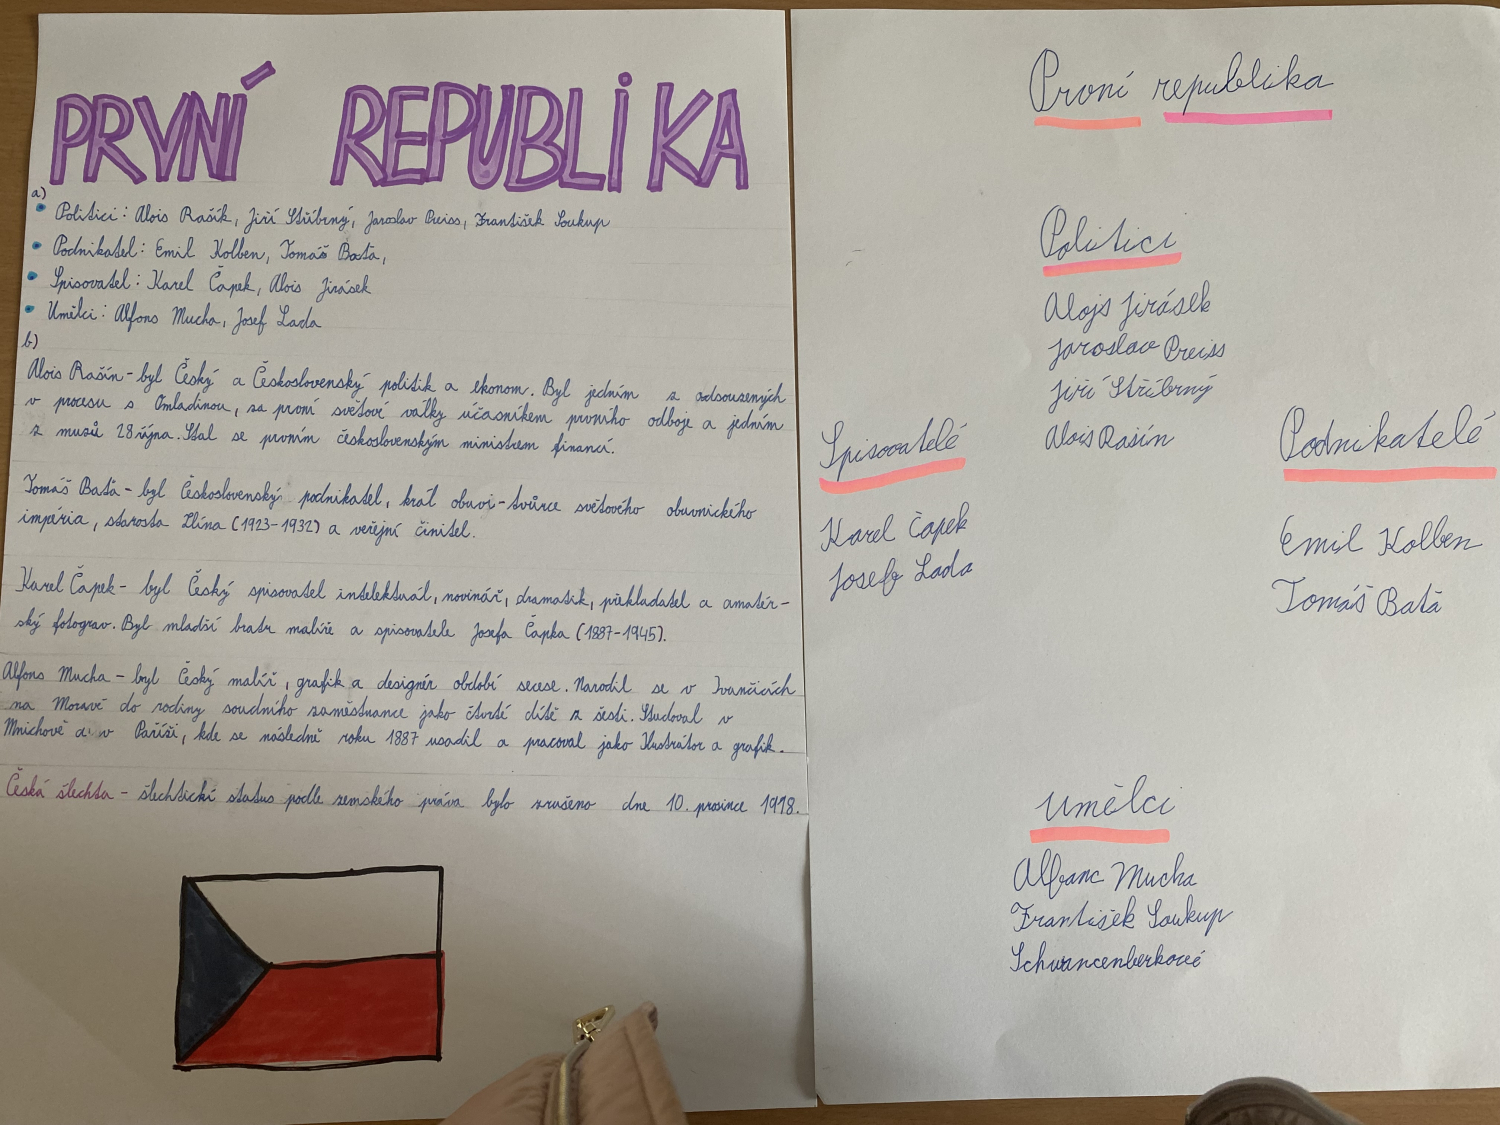 PRVNÍ REPUBLIKA
a)
• Politici: Alois Rašík, Jiří Stříbrný, Jaroslav Preiss, František Soukup
• Podnikatel: Emil Kolben, Tomáš Baťa,
• Spisovatel: Karel Čapek, Alois Jirásek
• Umělci: Alfons Mucha, Josef Lada
b)
Alois Rašín – byl Český a Československý politik a ekonom. Byl jedním z odsouzených
v procesu s Omladinou, za první světové války účasníkem prvního odboje a jedním
z mužů 28 října. Stal se prvním československým ministrem financí.
Tomáš Baťa – byl Československý podnikatel, král obuvi – tvůrce světového obuvnického
impéria, starosta Zlína (1923–1932) a veřejní činitel.
Karel Čapek – byl Český spisovatel intelektuál, novinář, dramatik, překladatel a amatér-
ský fotograv. Byl mladší bratr malíře a spisovatele Josefa Čapka (1887–1945).
Alfons Mucha – byl Český malíř, grafik a designér období secese. Narodil se v Ivančicích
na Moravě do rodiny soudního zaměstnance jako čtvrté dítě z šesti. Studoval v
Mnichově a v Paříži, kde se následně roku 1887 usadil a pracoval jako Ilustrátor a grafik.
Česká šlechta – šlechtickí status podle zemského práva bylo zrušeno dne 10. prosince 1918.
První republika
Politici
Alojs Jirásek
Jaroslav Preiss
Jiří Stříbrný
Alois Rašín
Spisovatelé
Karel Čapek
Josef Lada
Podnikatelé
Emil Kolben
Tomáš Baťa
Umělci
Alfanc Mucha
František Soukup
Schwancenberkové